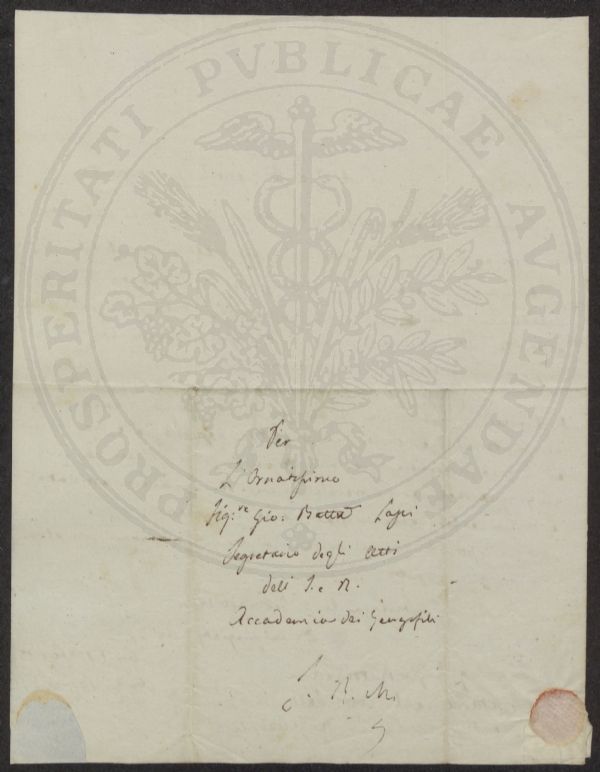 PROSPERITATI PVBLICAE AVGENDAE
Per
L'Ornatissimo
Sig:re Gio: Batta Lapi
Segretario degli Atti
dell' I. e R.
Accademia dei Georgofili
S. P. M.